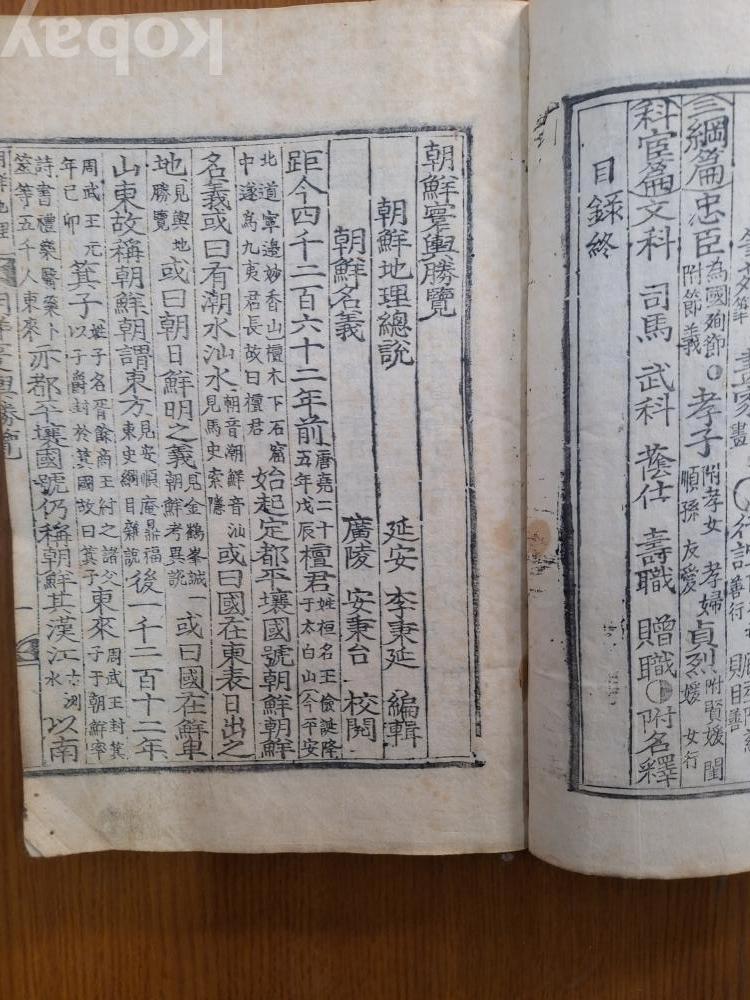 kobay
三綱篇 忠臣 為國殉節 附節義 孝子 附孝女 孝婦 順孫 友愛 貞烈 附賢媛 閨媛 女行
科宦篇 文科 司馬 武科 蔭仕 壽職 贈職 附名釋
目錄終
朝鮮寰輿勝覽
朝鮮地理總說 延安 李秉延 編輯
朝鮮名義 廣陵 安秉台 校閱
距今四千二百六十二年前 唐堯二十五年戊辰 檀君 姓桓名王儉誕降于太白山(今平安
北道寧邊妙香山檀木下石窟中遂為九夷君長故曰檀君 始起定都平壤國號朝鮮朝鮮
名義或曰有潮水汕水 朝音潮鮮音汕見馬史索隱 或曰國在東表日出之
地 見輿地勝覽 或曰朝日鮮明之義 見金鶴峯誠一朝鮮考異說 或曰國在鮮卑
山東故稱朝鮮朝謂東方 見安順庵鼎福東史綱目雜說 後一千二百十二年
周武王元年己卯 箕子 姓子名胥餘商王紂之諸父以子爵封於箕國故曰箕子 東來 周武王封箕子于朝鮮率
詩書禮樂醫藥卜筮等五千人東來 亦都平壤國號仍稱朝鮮其漢江 水 以南